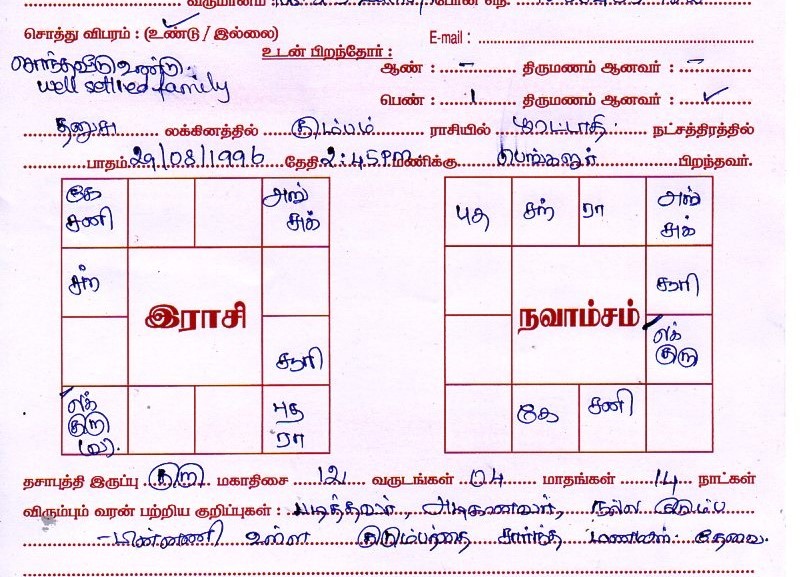 சொத்து விபரம் : (உண்டு / இல்லை) E-mail :
உடன் பிறந்தோர் :
சொந்தவீடு உண்டு. ஆண் : – திருமணம் ஆனவர் : –
well settled family
பெண் : 1 திருமணம் ஆனவர் : ✓
தனுசு லக்கினத்தில் கும்பம் ராசியில் பூரட்டாதி நட்சத்திரத்தில்
பாதம் 29/08/1996 தேதி 2:45PM மணிக்கு பெங்களூர் பிறந்தவர்.
கே
சனி
செவ்
சுக்
சந்
இராசி
சூரி
லக்
குரு
புத
ரா
புத சந் ரா செவ்
சுக்
சூரி
நவாம்சம்
லக்
குரு
கே சனி
தசாபுத்தி இருப்பு குரு மகாதிசை 12 வருடங்கள் 04 மாதங்கள் 14 நாட்கள்
விரும்பும் வரன் பற்றிய குறிப்புகள் : படித்தவர், நல்ல குடும்ப
பின்னணி உள்ள குடும்பத்தை சார்ந்த மணமகன் தேவை.